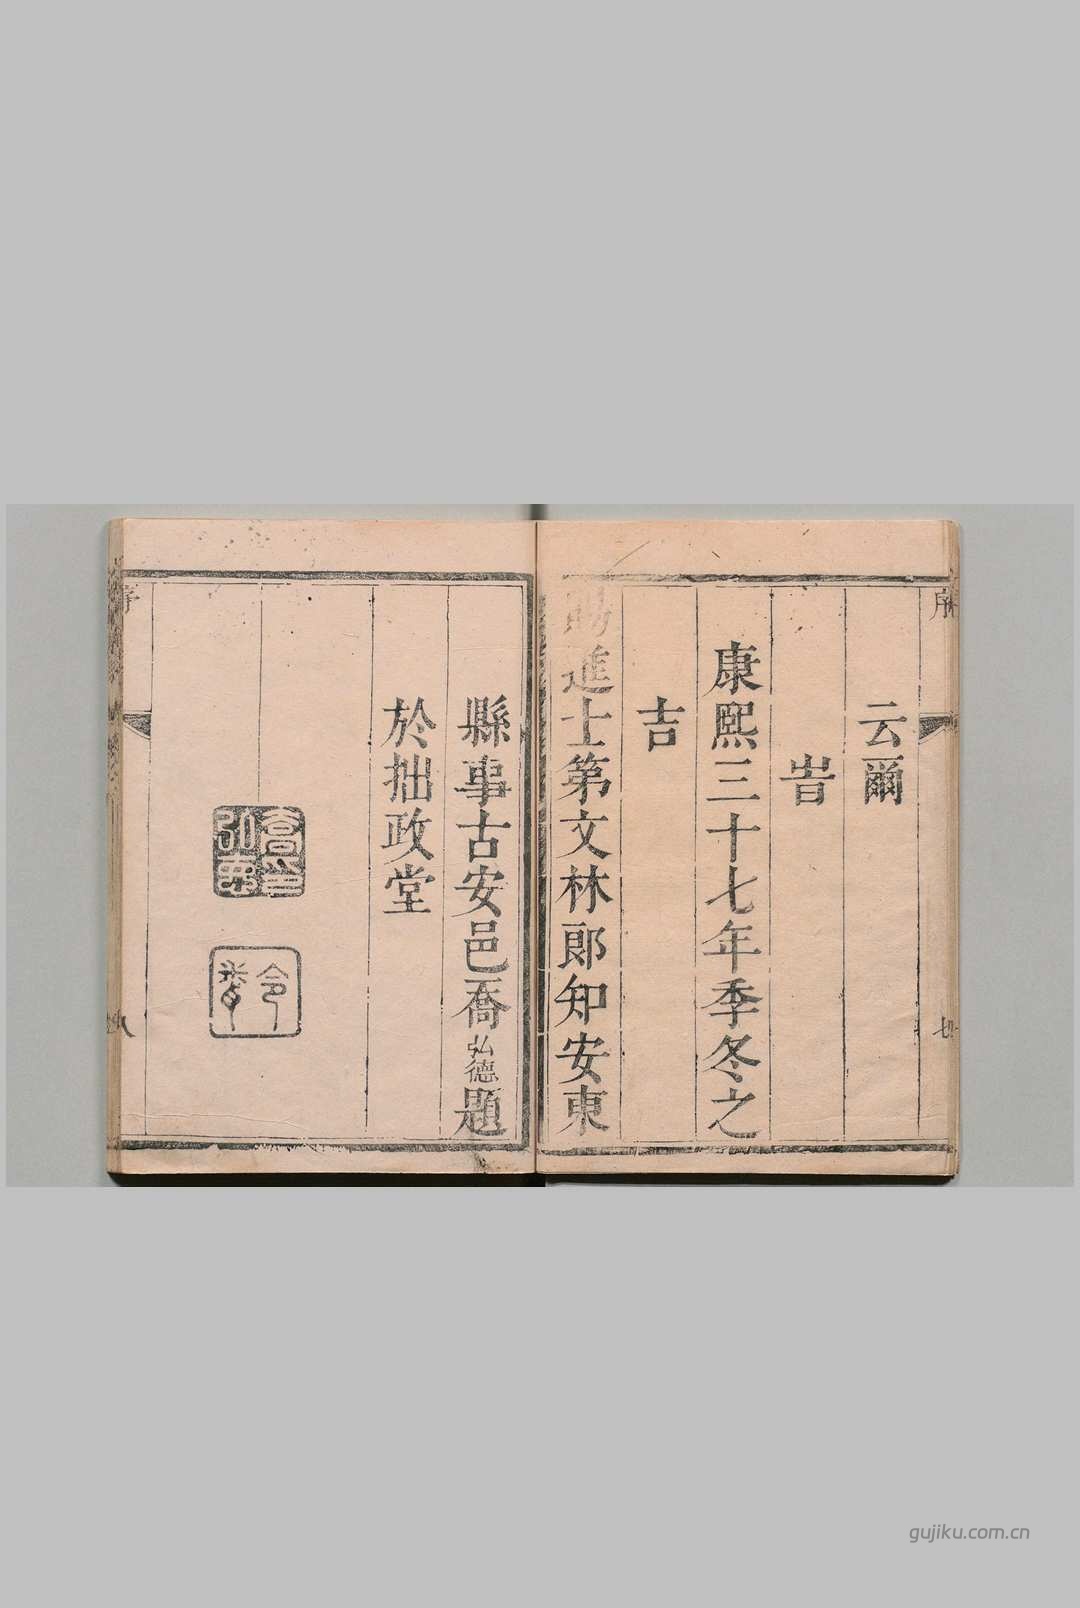 云爾
旹
康熙三十七年季冬之
吉
賜進士第文林郎知安東
縣事古安邑喬弘德題
於拙政堂
序
七
序
八
gujiku.com.cn